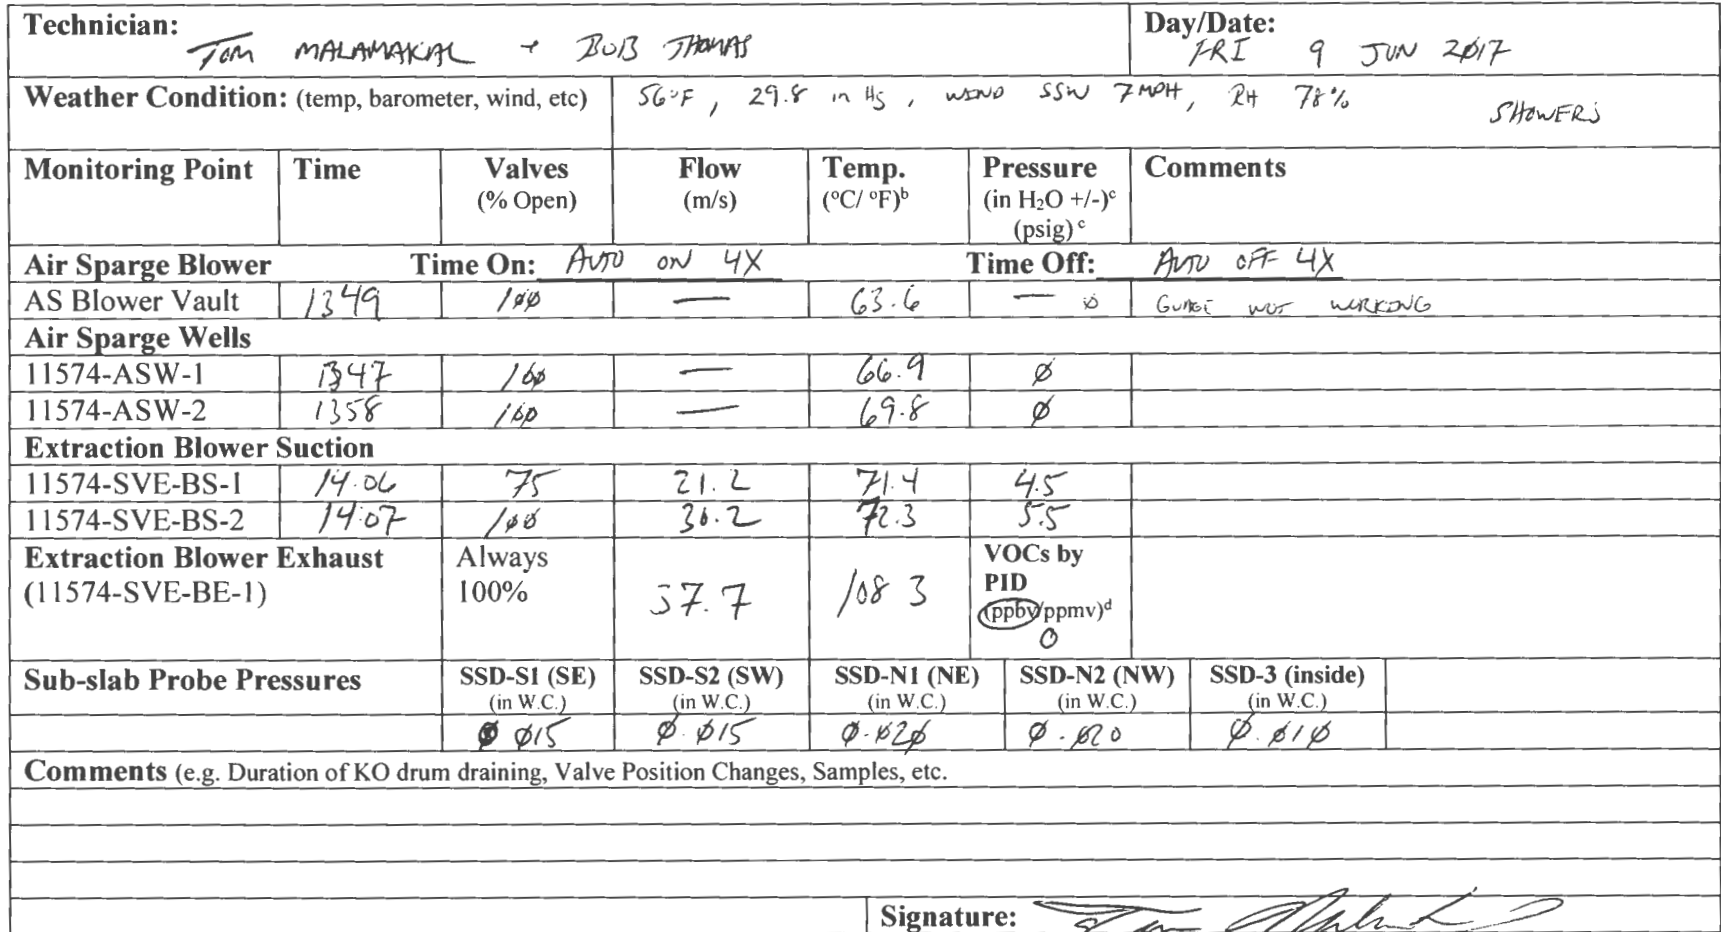 Technician: Day/Date:
Tom MALAMAKAL + BOB THOMAS FRI 9 JUN 2Ø17
Weather Condition: (temp, barometer, wind, etc) 56°F, 29.8 in Hg, WIND SSW 7 MPH, RH 78% SHOWERS
Monitoring Point Time Valves Flow Temp. Pressure Comments
(% Open) (m/s) (°C/ °F)ᵇ (in H₂O +/-)ᶜ
(psig) ᶜ
Air Sparge Blower Time On: AUTO ON 4X Time Off: AUTO OFF 4X
AS Blower Vault 1349 1ØØ — 63.6 — Ø GUAGE NOT WORKING
Air Sparge Wells
11574-ASW-1 1347 1ØØ — 66.9 Ø
11574-ASW-2 1358 1ØØ — 69.8 Ø
Extraction Blower Suction
11574-SVE-BS-1 14:06 75 21.2 71.4 4.5
11574-SVE-BS-2 14:07 1ØØ 72.3 5.5
Extraction Blower Exhaust Always VOCs by
(11574-SVE-BE-1) 100% 37.7 108 3 PID
(ppbv/ppmv)ᵈ
0
Sub-slab Probe Pressures SSD-S1 (SE) SSD-S2 (SW) SSD-N1 (NE) SSD-N2 (NW) SSD-3 (inside)
(in W.C.) (in W.C.) (in W.C.) (in W.C.) (in W.C.)
Ø Ø15 Ø.Ø15 Ø.Ø2Ø Ø.Ø20 Ø.Ø1Ø
Comments (e.g. Duration of KO drum draining, Valve Position Changes, Samples, etc.
Signature: